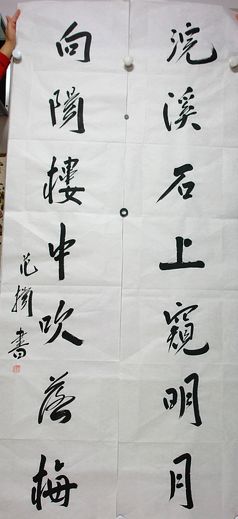 浣溪石上窺明月
向陽樓中吹落梅
范書